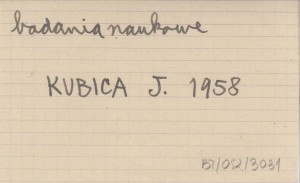 badania naukowe
KUBICA J. 1958
BT/OSZ/3031